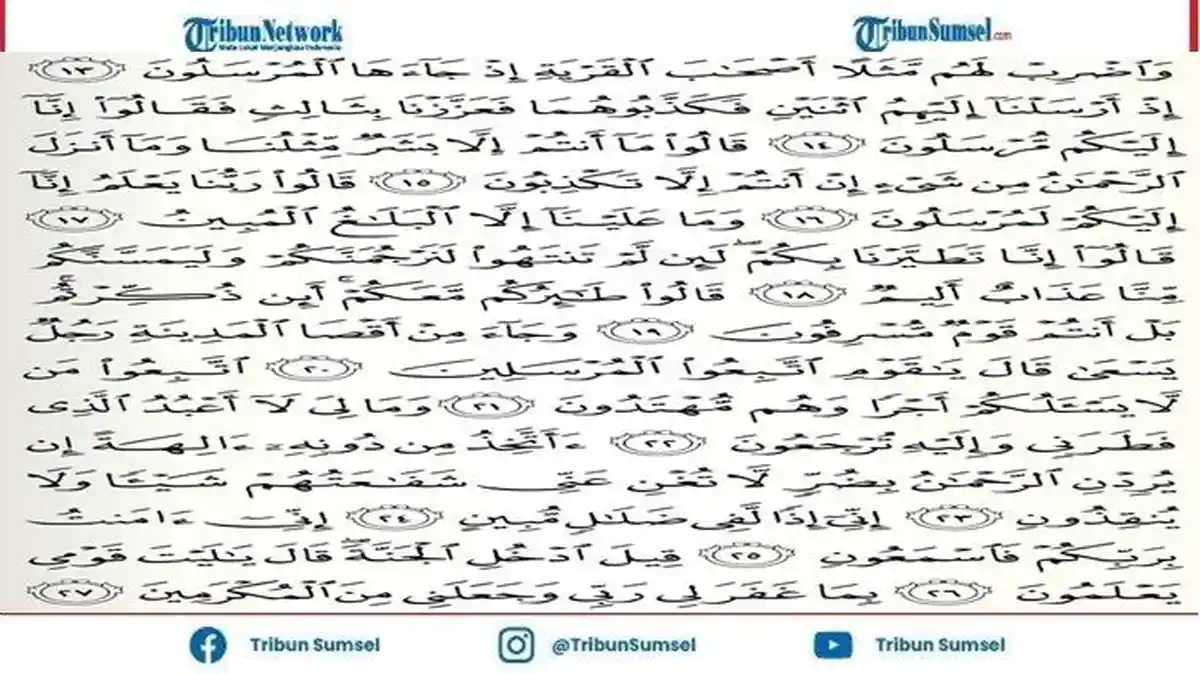 Tribun Network
Mata Lokal Menjangkau Indonesia
Tribun Sumsel.com
وَاضْرِبْ لَهُم مَّثَلًا أَصْحَٰبَ الْقَرْيَةِ إِذْ جَاءَهَا الْمُرْسَلُونَ ١٣
إِذْ أَرْسَلْنَا إِلَيْهِمُ اثْنَيْنِ فَكَذَّبُوهُمَا فَعَزَّزْنَا بِثَالِثٍ فَقَالُوا إِنَّا
إِلَيْكُم مُّرْسَلُونَ ١٤ قَالُوا مَا أَنتُمْ إِلَّا بَشَرٌ مِّثْلُنَا وَمَا أَنزَلَ
الرَّحْمَٰنُ مِن شَيْءٍ إِنْ أَنتُمْ إِلَّا تَكْذِبُونَ ١٥ قَالُوا رَبُّنَا يَعْلَمُ إِنَّا
إِلَيْكُمْ لَمُرْسَلُونَ ١٦ وَمَا عَلَيْنَا إِلَّا الْبَلَٰغُ الْمُبِينُ ١٧
قَالُوا إِنَّا تَطَيَّرْنَا بِكُمْ لَئِن لَّمْ تَنتَهُوا لَنَرْجُمَنَّكُمْ وَلَيَمَسَّنَّكُم
مِّنَّا عَذَابٌ أَلِيمٌ ١٨ قَالُوا طَٰئِرُكُم مَّعَكُمْ أَئِن ذُكِّرْتُم
بَلْ أَنتُمْ قَوْمٌ مُّسْرِفُونَ ١٩ وَجَاءَ مِنْ أَقْصَا الْمَدِينَةِ رَجُلٌ
يَسْعَىٰ قَالَ يَٰقَوْمِ اتَّبِعُوا الْمُرْسَلِينَ ٢٠ اتَّبِعُوا مَن
لَّا يَسْـَٔلُكُمْ أَجْرًا وَهُم مُّهْتَدُونَ ٢١ وَمَا لِيَ لَا أَعْبُدُ الَّذِى
فَطَرَنِى وَإِلَيْهِ تُرْجَعُونَ ٢٢ ءَأَتَّخِذُ مِن دُونِهِۦ ءَالِهَةً إِن
يُرِدْنِ الرَّحْمَٰنُ بِضُرٍّ لَّا تُغْنِ عَنِّى شَفَٰعَتُهُمْ شَيْـًٔا وَلَا
يُنقِذُونِ ٢٣ إِنِّى إِذًا لَّفِى ضَلَٰلٍ مُّبِينٍ ٢٤ إِنِّى ءَامَنتُ
بِرَبِّكُمْ فَاسْمَعُونِ ٢٥ قِيلَ ادْخُلِ الْجَنَّةَ قَالَ يَٰلَيْتَ قَوْمِى
يَعْلَمُونَ ٢٦ بِمَا غَفَرَ لِى رَبِّى وَجَعَلَنِى مِنَ الْمُكْرَمِينَ ٢٧
Tribun Sumsel
@TribunSumsel
Tribun Sumsel